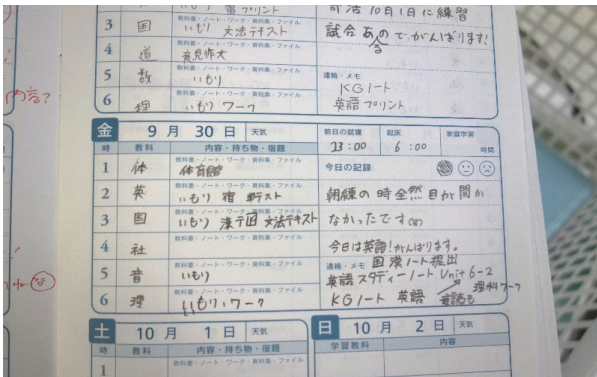 3 国 教科書・ノート・ワーク・資料集・ファイル いもり 文法テキスト
4 道 教科書・ノート・ワーク・資料集・ファイル 意見作文
5 数 教科書・ノート・ワーク・資料集・ファイル いもり
6 理 教科書・ノート・ワーク・資料集・ファイル いもり ワーク
部活10月1日に練習
試合あるのでがんばります!
連絡・メモ
KGノート
英語プリント
内容?
金 9月30日 天気 前日の就寝 23:00 起床 6:00 家庭学習 時間
時 教科 内容・持ち物・宿題
1 体 教科書・ノート・ワーク・資料集・ファイル 体育館
2 英 教科書・ノート・ワーク・資料集・ファイル いもり 宿 単テスト
3 国 教科書・ノート・ワーク・資料集・ファイル いもり 漢テ 文法テキスト
4 社 教科書・ノート・ワーク・資料集・ファイル
5 音 教科書・ノート・ワーク・資料集・ファイル いもり
6 理 教科書・ノート・ワーク・資料集・ファイル いもり、ワーク
今日の記録
朝練の時全然目が開か
なかったです
今日は英語!がんばります。
連絡・メモ 国 漢ノート提出
英語スタディーノート Unit 6-2
KGノート 英語 理科ワーク
土 10月1日 天気
時 教科 内容・持ち物・宿題
1 教科書・ノート・ワーク・資料集・ファイル
日 10月2日 天気
学習教科 内容